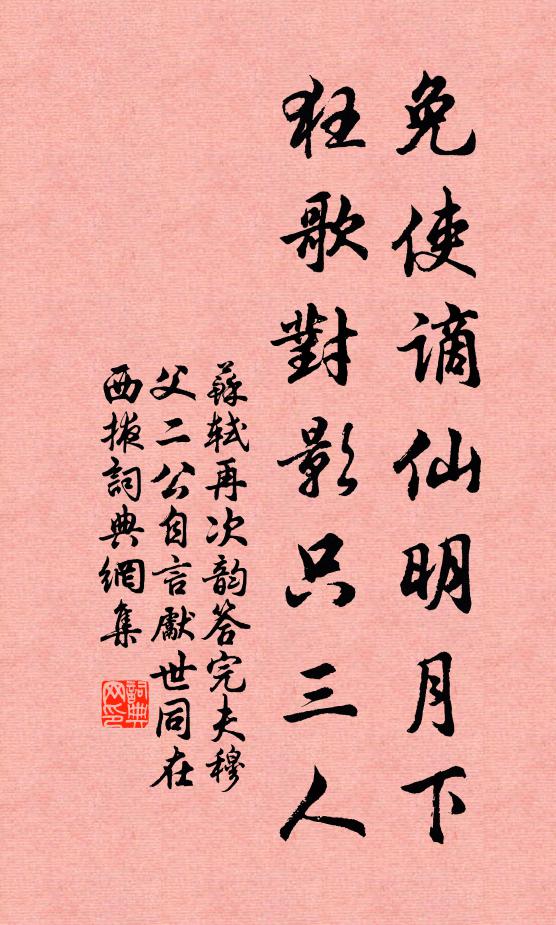 免使謫仙明月下
狂歌對影只三人
蘇軾再次韵答完夫穆
父二公自言獻世同在
西掖詞典網集
詞典
网印